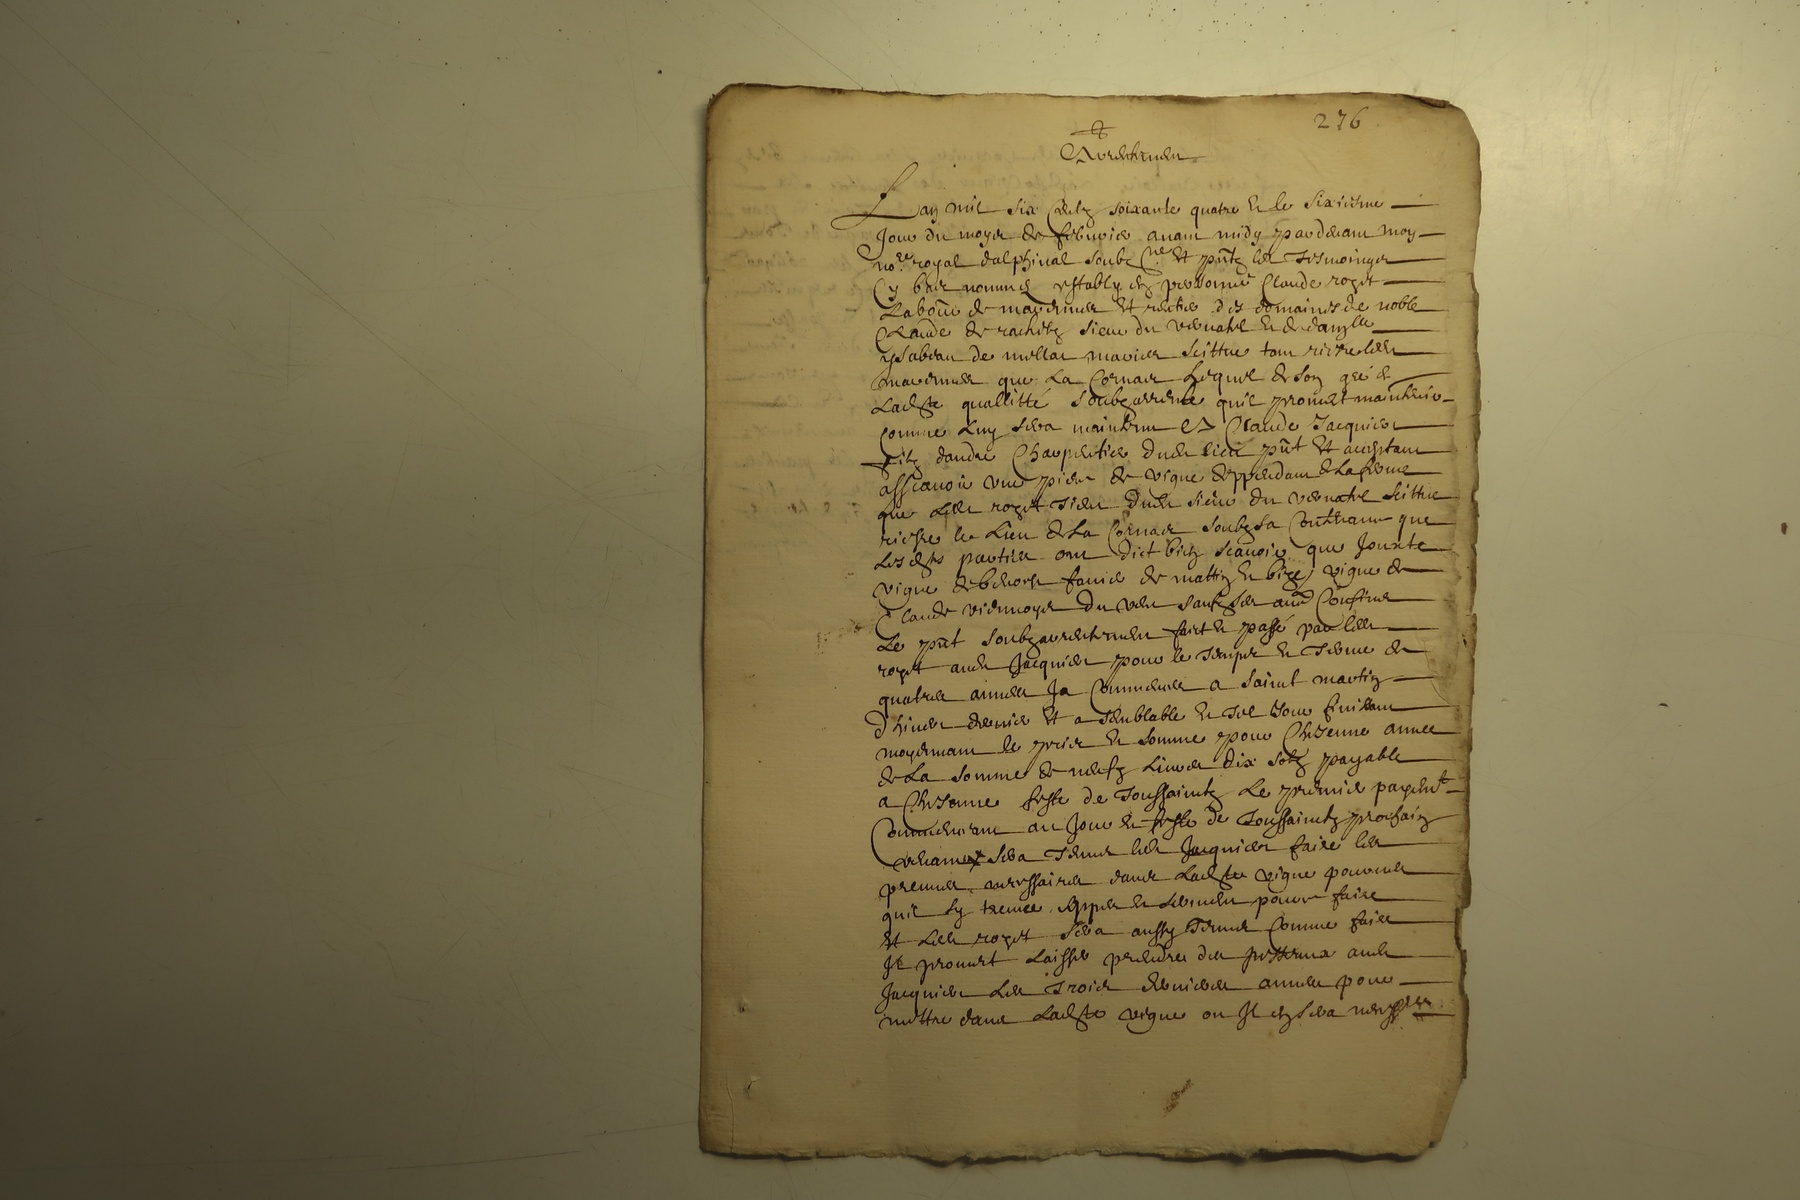 276
Arrentemen
Lan mil six centz soixante quatre et le sixiesme
Jour du moys de febvrier avant midy pardevant moy
no.re royal dalphinal soubz ne et pnts les tesmoings
Cy bas nommes estably en personne Claude roget
Labour de et rentier des domaines de noble
Claude de rachitz sieur du vernatel et de damlle
ysabeau de maries scittue tant riere led
que La Cornas Lequel de son gré et
Ladte quallitté soubzarrente quil promet maintenir
comme Luy sera maintenu a Claude Jacquier
filz dandre Charpentier dud lieu pnt et aceptant
asscavoir une piece de vigne deppendant de La ferme
que Led roget tient dud sieur du vernatel scittue
riere le Lieu de La Cornas soubz sa Conthenance que
Lesdts parties ont dict bien scavoir que Jouxte
vigne de favier de mattin et bize vigne de
Claude viennoys du vent sauf ses aues Confins
Le pnt soubzarrentemen faict et passé par led
roget aud Jacquier pour le temps et terme de
quatre annees Ja Commences a saint martin
dhiver dernier et a semblable et tel Jour finissant
moyennant le pris et somme pour Chesenne annee
de La somme de neufz Livres dix solz payable
a Chesenne feste de Toussaintz Le premier payemt
Commencant au Jour et feste de Toussaintz prochain
venant sera tenu led Jacquier faire les
necessaires dans Ladte vigne pourveu
quil sy treuve et pour faire
et Led roget sera aussy tenu Comme faire
Il promet Laisser prendre des aud
Jacquier Les trois dernieres annees pour
mettre dans Ladte vigne ou Il en sera